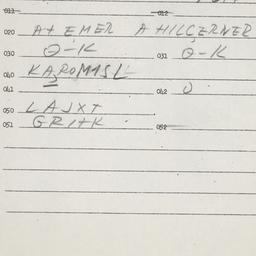 011 012
020 A+ EMER A HILLCERNER
030 O-K 031 O-K
040 KAROMASL
041 042 O
050 LAJXT
051 GRITK 052